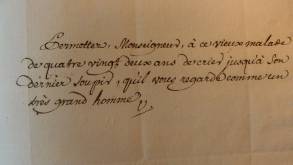 Permettez, Monseigneur, à ce vieux malade
de quatre vingt deux ans de crier jusqu'à son
dernier soupir, qu'il vous regarde comme un
très grand homme